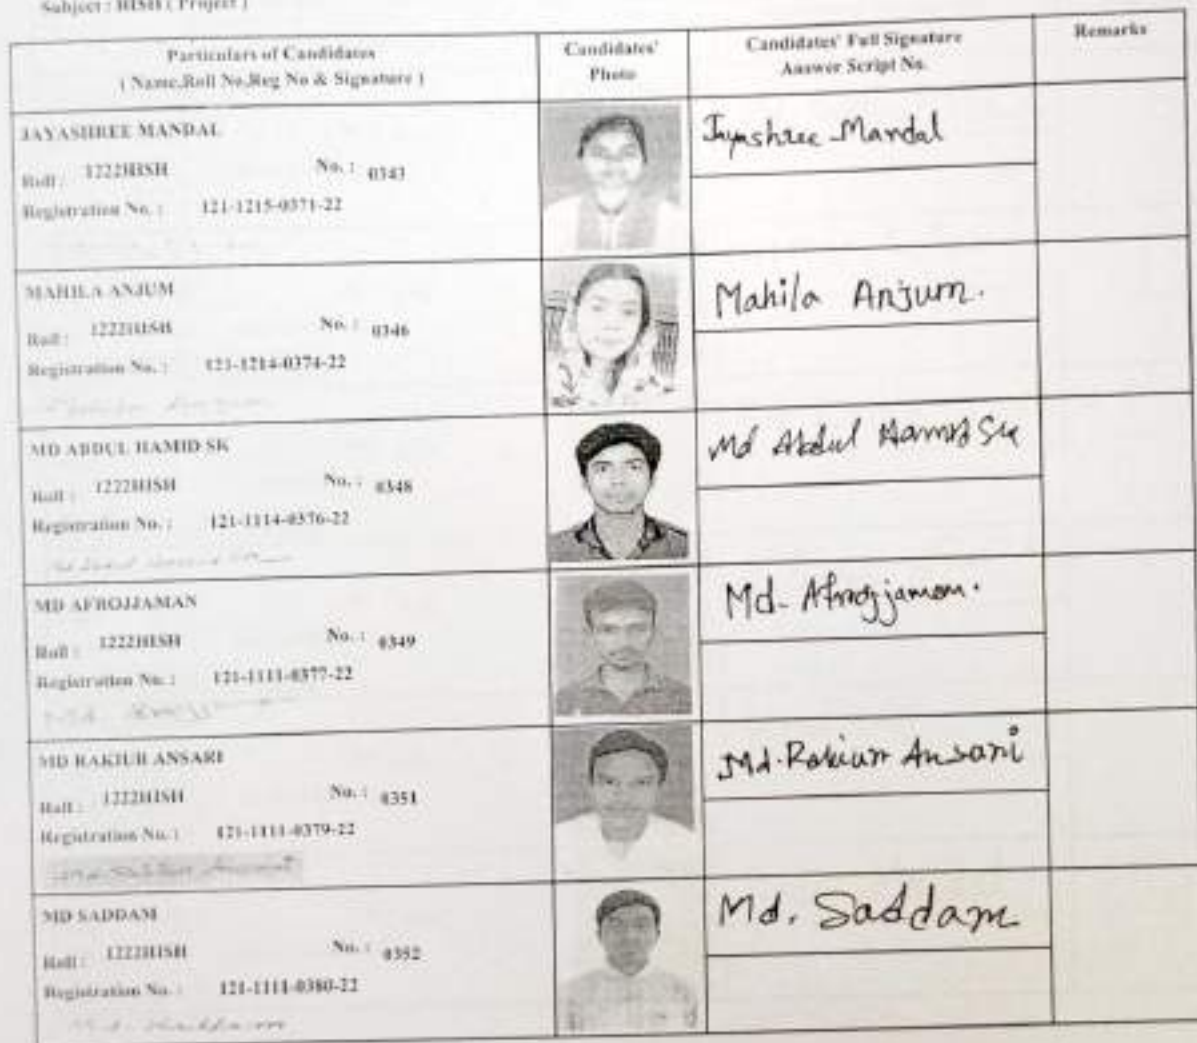 Subject : HISH ( Project )
Particulars of Candidates
( Name,Roll No,Reg No & Signature )
Candidates'
Photo
Candidates' Full Signature
Answer Script No.
Remarks
JAYASHREE MANDAL
Roll : 1222HISH No. : 0343
Registration No. : 121-1215-0371-22
Jayashree Mandal
MAHILA ANJUM
Roll : 1222HISH No. : 0346
Registration No. : 121-1214-0374-22
Mahila Anjum
Mahila Anjum.
MD ABDUL HAMID SK
Roll : 1222HISH No. : 0348
Registration No. : 121-1114-0376-22
Md Abdul Hamid Sk
MD AFROJJAMAN
Roll : 1222HISH No. : 0349
Registration No. : 121-1111-0377-22
Md. Afrojjaman.
MD RAKIUB ANSARI
Roll : 1222HISH No. : 0351
Registration No. : 121-1111-0379-22
Md. Ansari
Md. Ansari
MD SADDAM
Roll : 1222HISH No. : 0352
Registration No. : 121-1111-0380-22
Md. Saddam
Md. Saddam